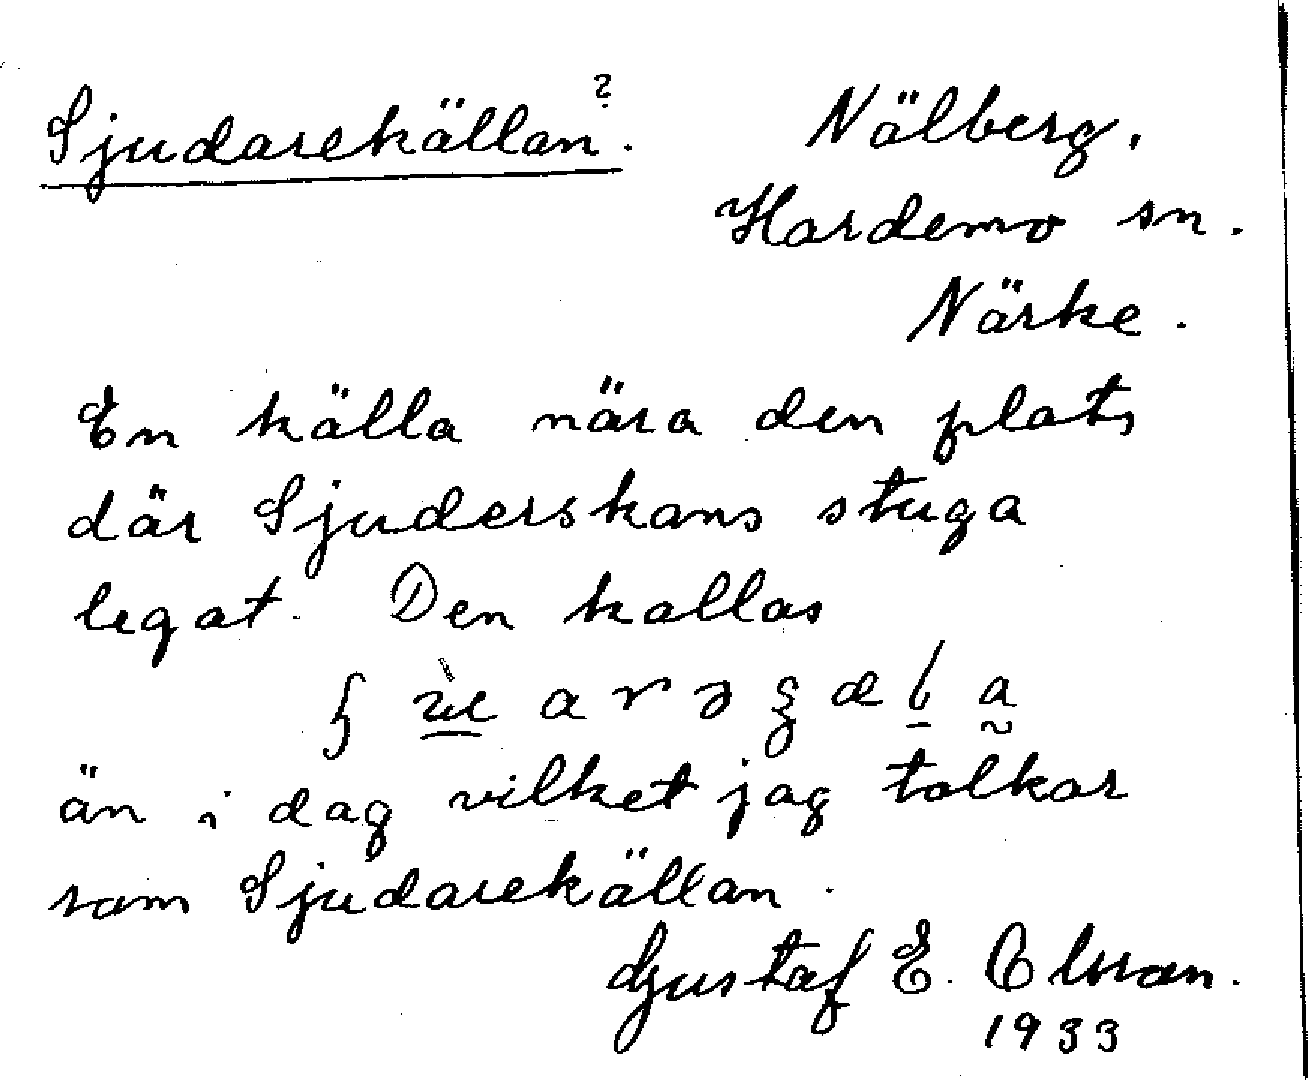 Sjudarekällan?.
Nälberg,
Hardemo sn.
Närke.
En källa nära den plats
där Sjuderskans stuga
legat. Den kallas
än i dag vilket jag tolkar
som Sjudarekällan.
Gustaf E. Olsson.
1933